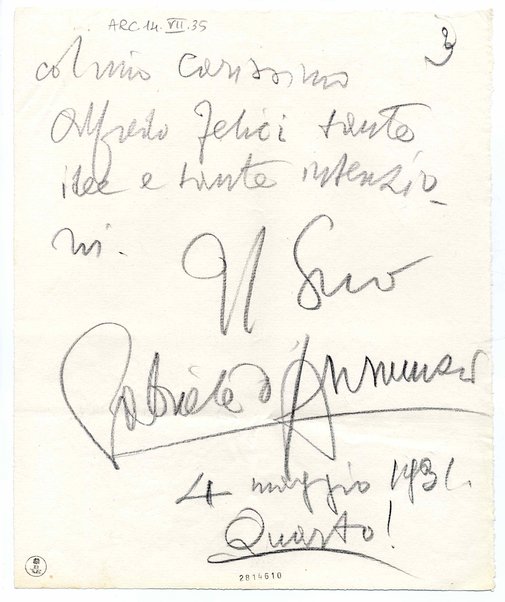 ARC.14.VII.35
3
col mio carissimo
Alfredo Felici tante
idee e tante intenzio-
ni.
Il Suo
Gabriele d'Annunzio
4 maggio 1931.
Quarto!
2814610